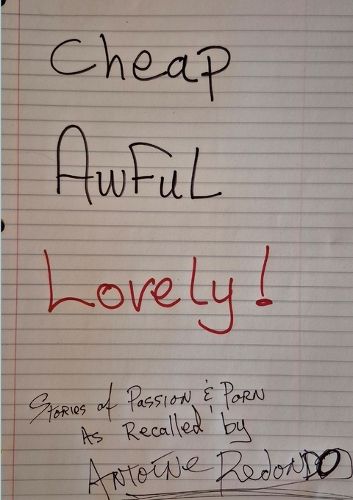 Cheap
AwFuL
Lovely!
Stories of Passion & Porn
As Recalled by
Antoine Redondo